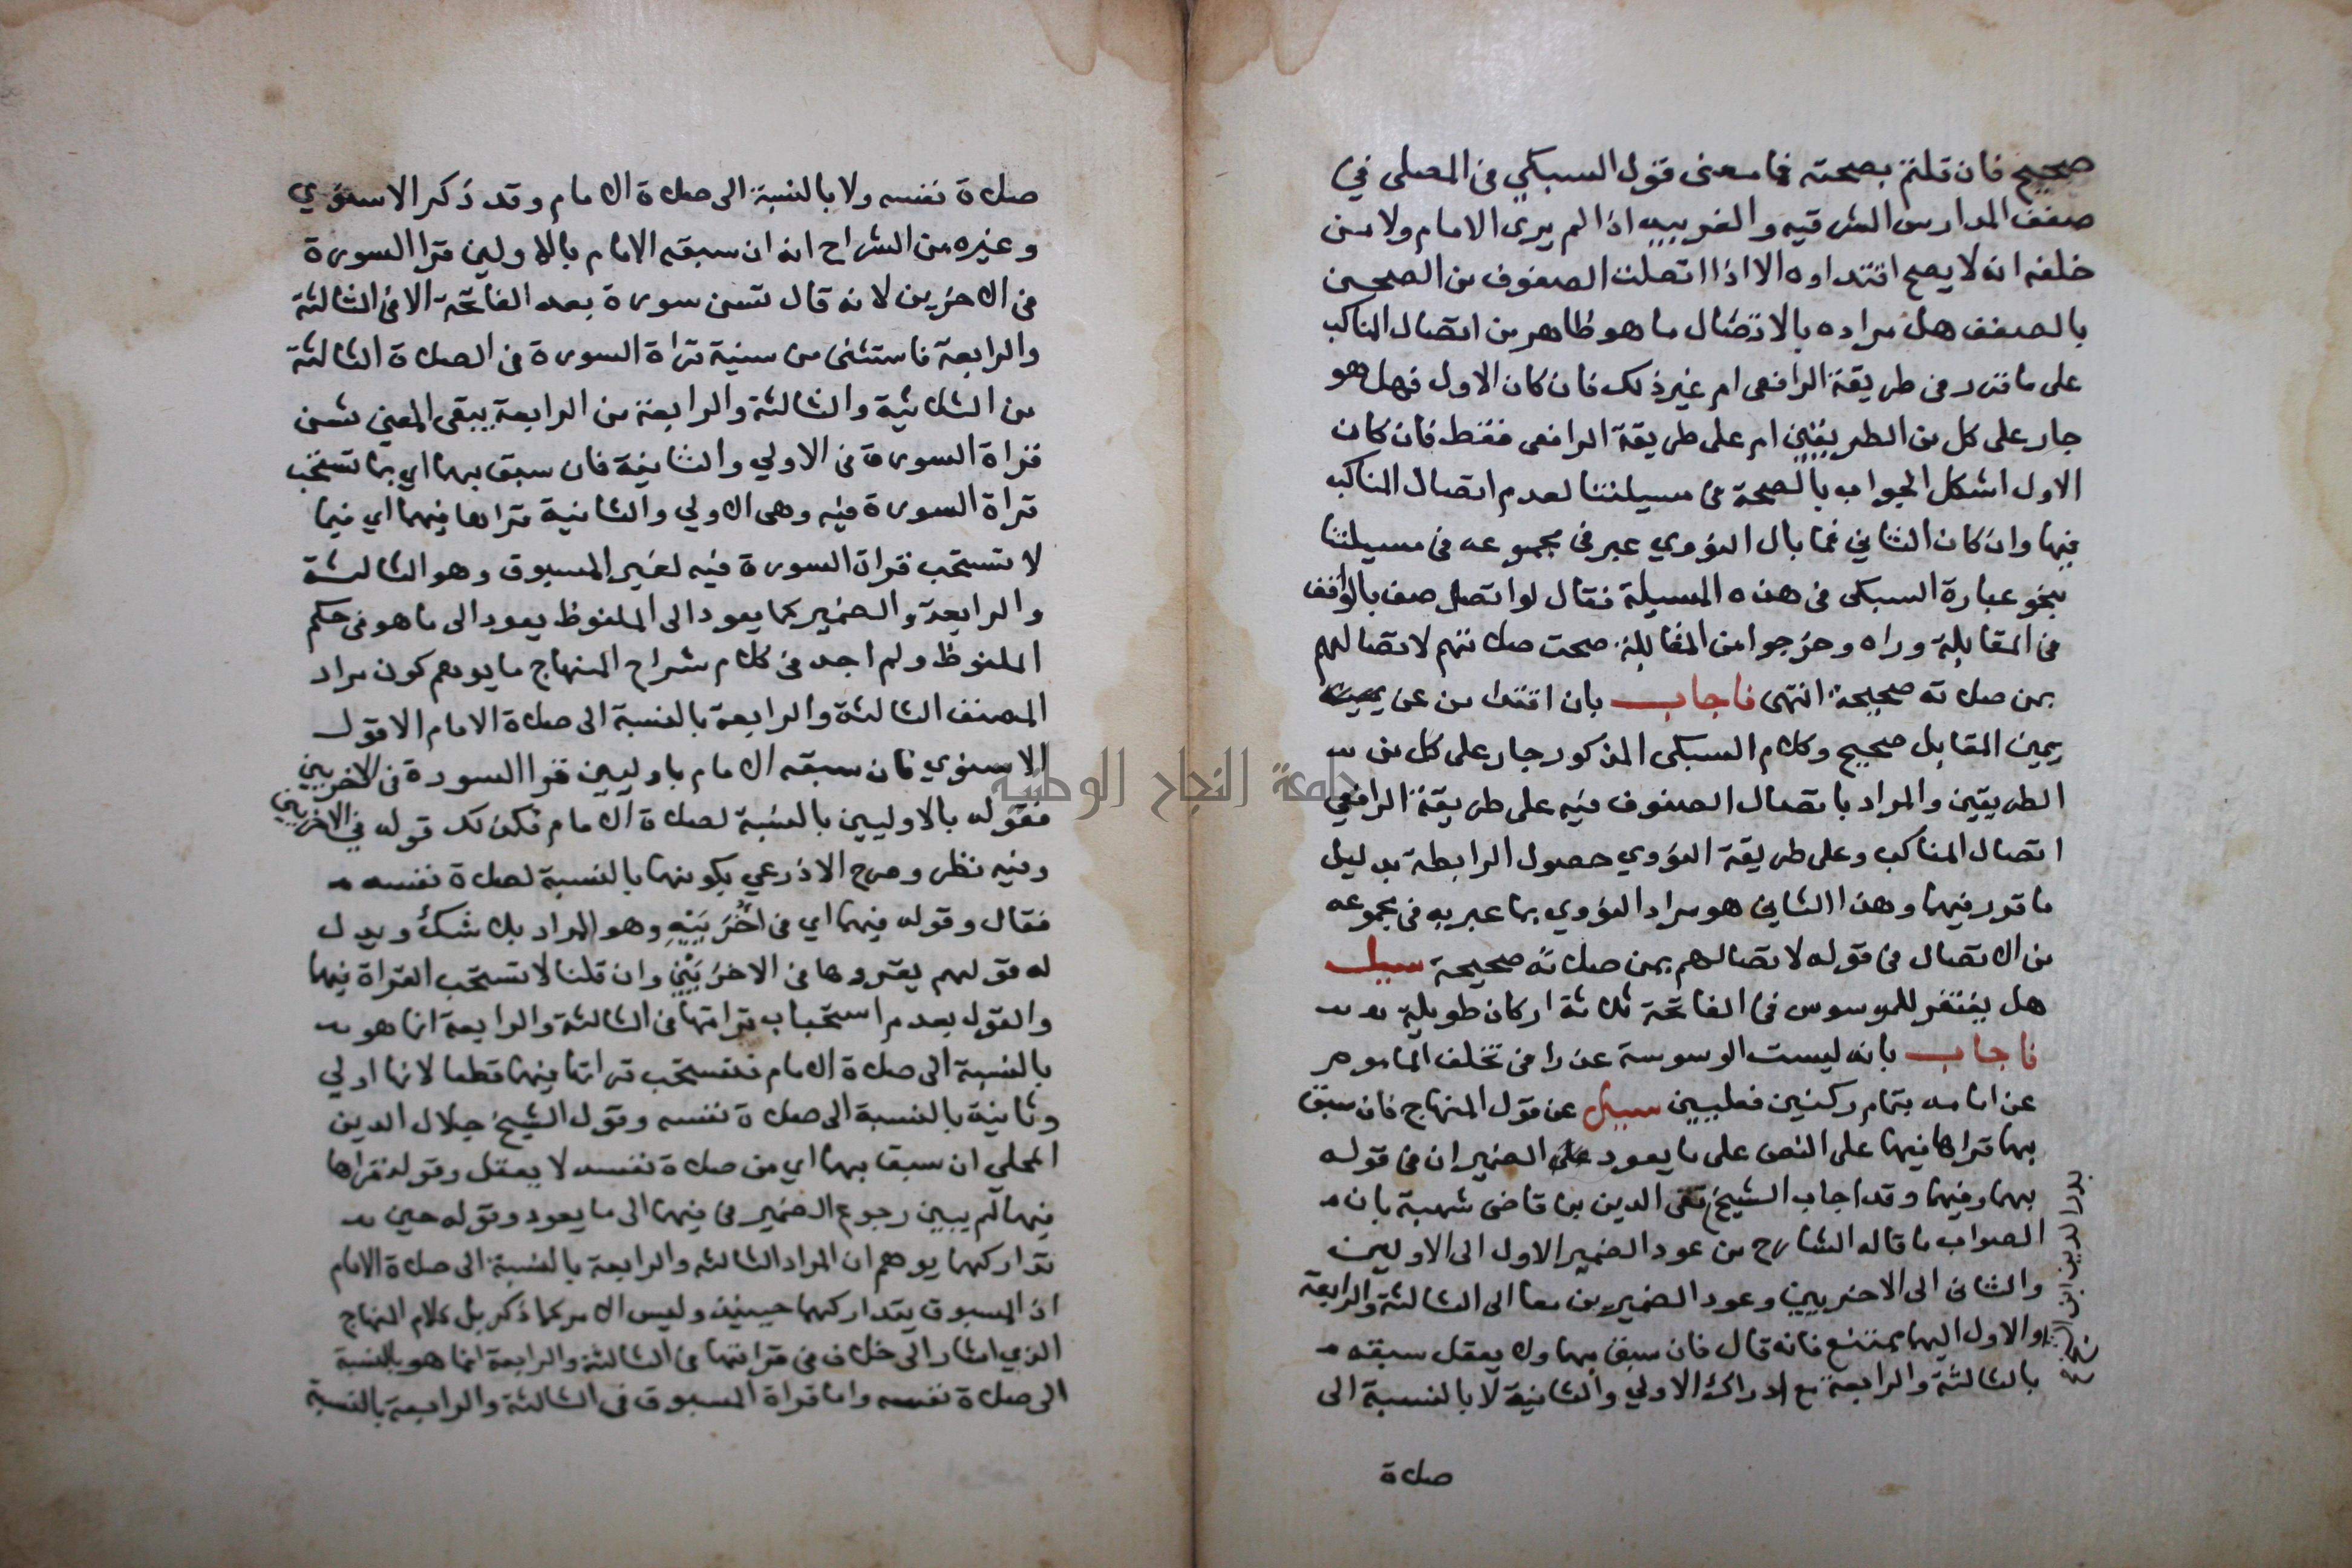 صحيح فان قلتم بصحته فما معنى قول السبكي في المصلى في
صفف المدارس الشرقيه والغربيه اذا لم يرى الامام ولا من
خلفه انه لا يصح اقتداوه الا اذا اتصلت الصفوف من الصحن
بالصفف هل مراده بالاتصال ما هو ظاهر من اتصال المناكب
على ما قرر في طريقة الرافعى ام غير ذلك فان كان الاول فهل هو
جار على كل من الطريقين ام على طريقة الرافعى فقط فان كان
الاول اشكل الجواب بالصحة في مسيلتنا لعدم اتصال المناكب
فيها وان كان الثاني فما بال النووي عبر في مجموعه في مسيلتنا
بنحو عبارة السبكى في هذه المسيلة فقال لو اتصل صف بالواقف
في المقابلة وراه وخرجوا من المقابلة صحت صلاتهم لاتصالهم
بمن صلاته صحيحة انتهى فاجاب بان اقتدا من عن يمين
يمين المقابل صحيح وكلام السبكى المذكور جار على كل من
الطريقين والمراد باتصال الصفوف فيه على طريقة الرافعي
اتصال المناكب وعلى طريقة النووي حصول الرابطة بدليل
ما قرر فيهما وهذا الثاني هو مراد النووي بما عبر به في مجموعه
من الاتصال في قوله لاتصالهم بمن صلاته صحيحة سيل
هل يغتفر للموسوس في الفاتحة ثلاثة اركان طويلة
فاجاب بانه ليست الوسوسة عذرا في تخلف الماموم
عن امامه بتمام ركنين فعليين سيل عن قول المنهاج فان سبق
بهما قراها فيهما على النص على ما يعود الضميران في قوله
بهما وفيهما وقد اجاب الشيخ تقى الدين بن قاضى شهبة بان
الصواب ما قاله الشارح من عود الضمير الاول الى الاوليين
والثانى الى الاخريين وعود الضميرين معا الى الثالثة والرابعة
والاول اليهما ممتنع فانه قال فان سبق بهما ولا يعقل سبقه
بالثالثة والرابعة مع ادراكه الاولي والثانية لا بالنسبة الى
صلاة
بدر الدين ابن
صلاة نفسه ولا بالنسبة الى صلاة الامام وقد ذكر الاسنوي
وغيره من الشراح انه ان سبقه الامام بالاولين قرا السورة
في الاخرين لانه قال تسن سورة بعد الفاتحة الا في الثالثة
والرابعة فاستثنى من سنية قراة السورة في الصلاة الثالثة
من الثلاثية والثالثة والرابعة من الرابعة يبقى المعنى تسن
قراة السورة في الاولي والثانية فان سبق بهما اي بما تستحب
قراة السورة فيه وهى الاولي والثانية قراها فيهما اي فيما
لا تستحب قراة السورة فيه لغير المسبوق وهو الثالثة
والرابعة والضمير كما يعود الى الملفوظ يعود الى ما هو في حكم
الملفوظ ولم اجد في كلام شراح المنهاج ما يوهم كون مراد
المصنف الثالثة والرابعة بالنسبة الى صلاة الامام الا قول
الاسنوي فان سبقه الامام باوليين قرا السورة في الاخريين
فقوله بالاوليين بالنسبة لصلاة الامام فكذلك قوله في الاخريين
وفيه نظر وصرح الاذرعي بكونهما بالنسبة لصلاة نفسه
فقال وقوله فيهما اي في اخريَيْهِ وهو المراد بلا شك ويدل
له قولهم يقروها في الاخريَيْنِ وان قلنا لا تستحب القراة فيهما
والقول بعدم استحباب قراتها في الثالثة والرابعة انما هو
بالنسبة الى صلاة الامام فتستحب قراتها فيهما قطعا لانها اولي
وثانية بالنسبة الى صلاة نفسه وقول الشيخ جلال الدين
المحلي ان سبقا بهما اي من صلاة نفسه لا يعقل وقوله قراها
فيهما لم يبين رجوع الضمير في فيهما الى ما يعود وقوله حين
تداركهما يوهم ان المراد الثالثه والرابعة بالنسبة الى صلاة الامام
اذ المسبوق يتداركهما حينيذ وليس الامر كما ذكر بل كلام المنهاج
الذي اشار الى خلاف في قراتها في الثالثة والرابعة انما هو بالنسبة
الى صلاة نفسه واما قراة المسبوق في الثالثة والرابعة بالنسبة
جامعة النجاح الوطنية